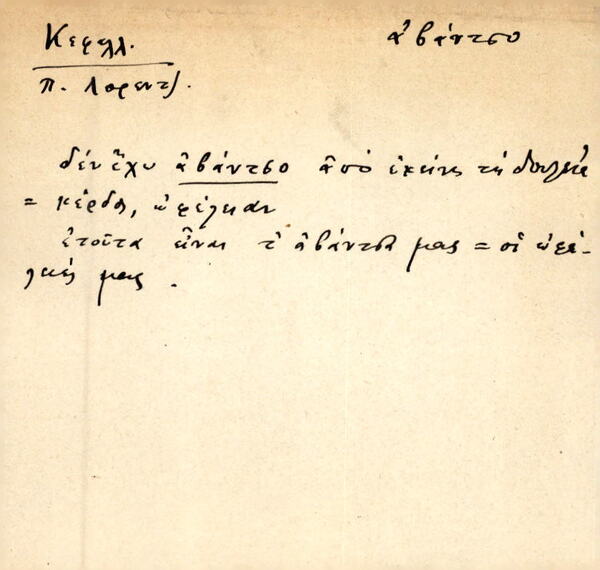 Κεφαλλ. ἀβάντσο
π. Λορεντζ.
δέν ἔχω ἀβάντσο ἀπό ἐκείνη τή δουλειά
= κέρδος, ὠφέλειαν
ἐτοῦτα εἶναι τ' ἀβάντσα μας = οἱ ὠφέ-
λειές μας.